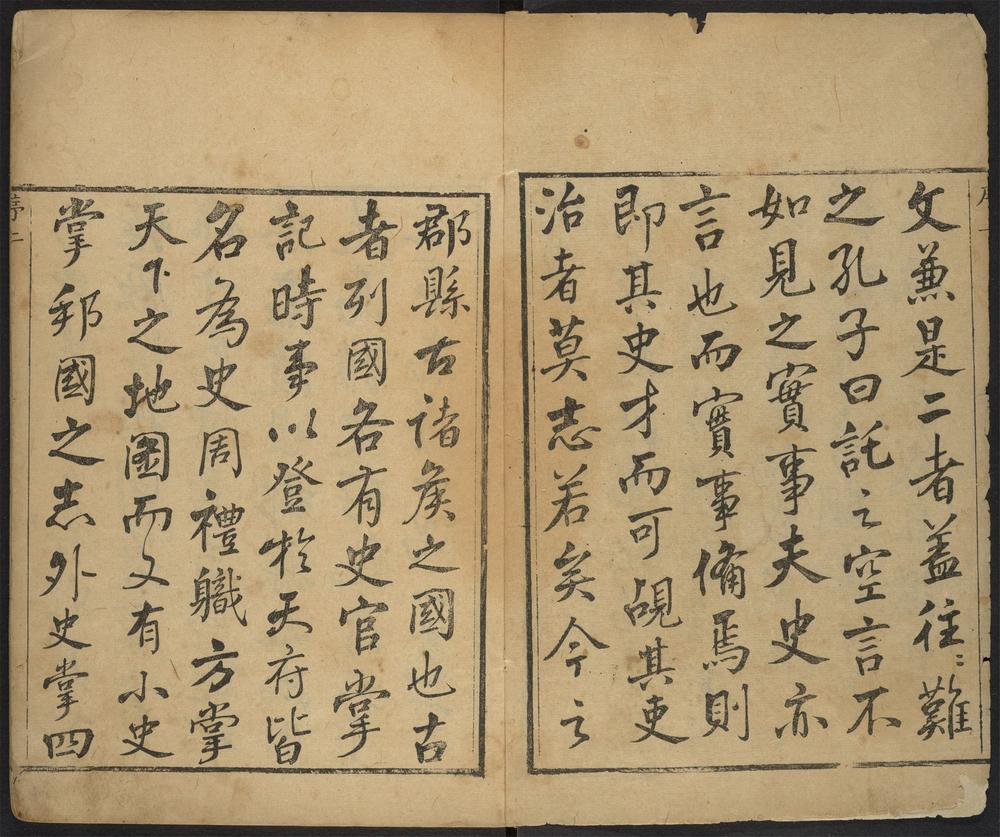 文兼是二者盖往〻難
之孔子曰託之空言不
如見之實事夫史亦
言也而實事俻焉則
即其史才而可覘其吏
治者莫志若矣今之
郡縣古諸矦之國也古
者列國各有史官掌
記時事以登於天府皆
名為史周禮職方掌
天下之地圖而又有小史
掌邦國之志外史掌四
序二